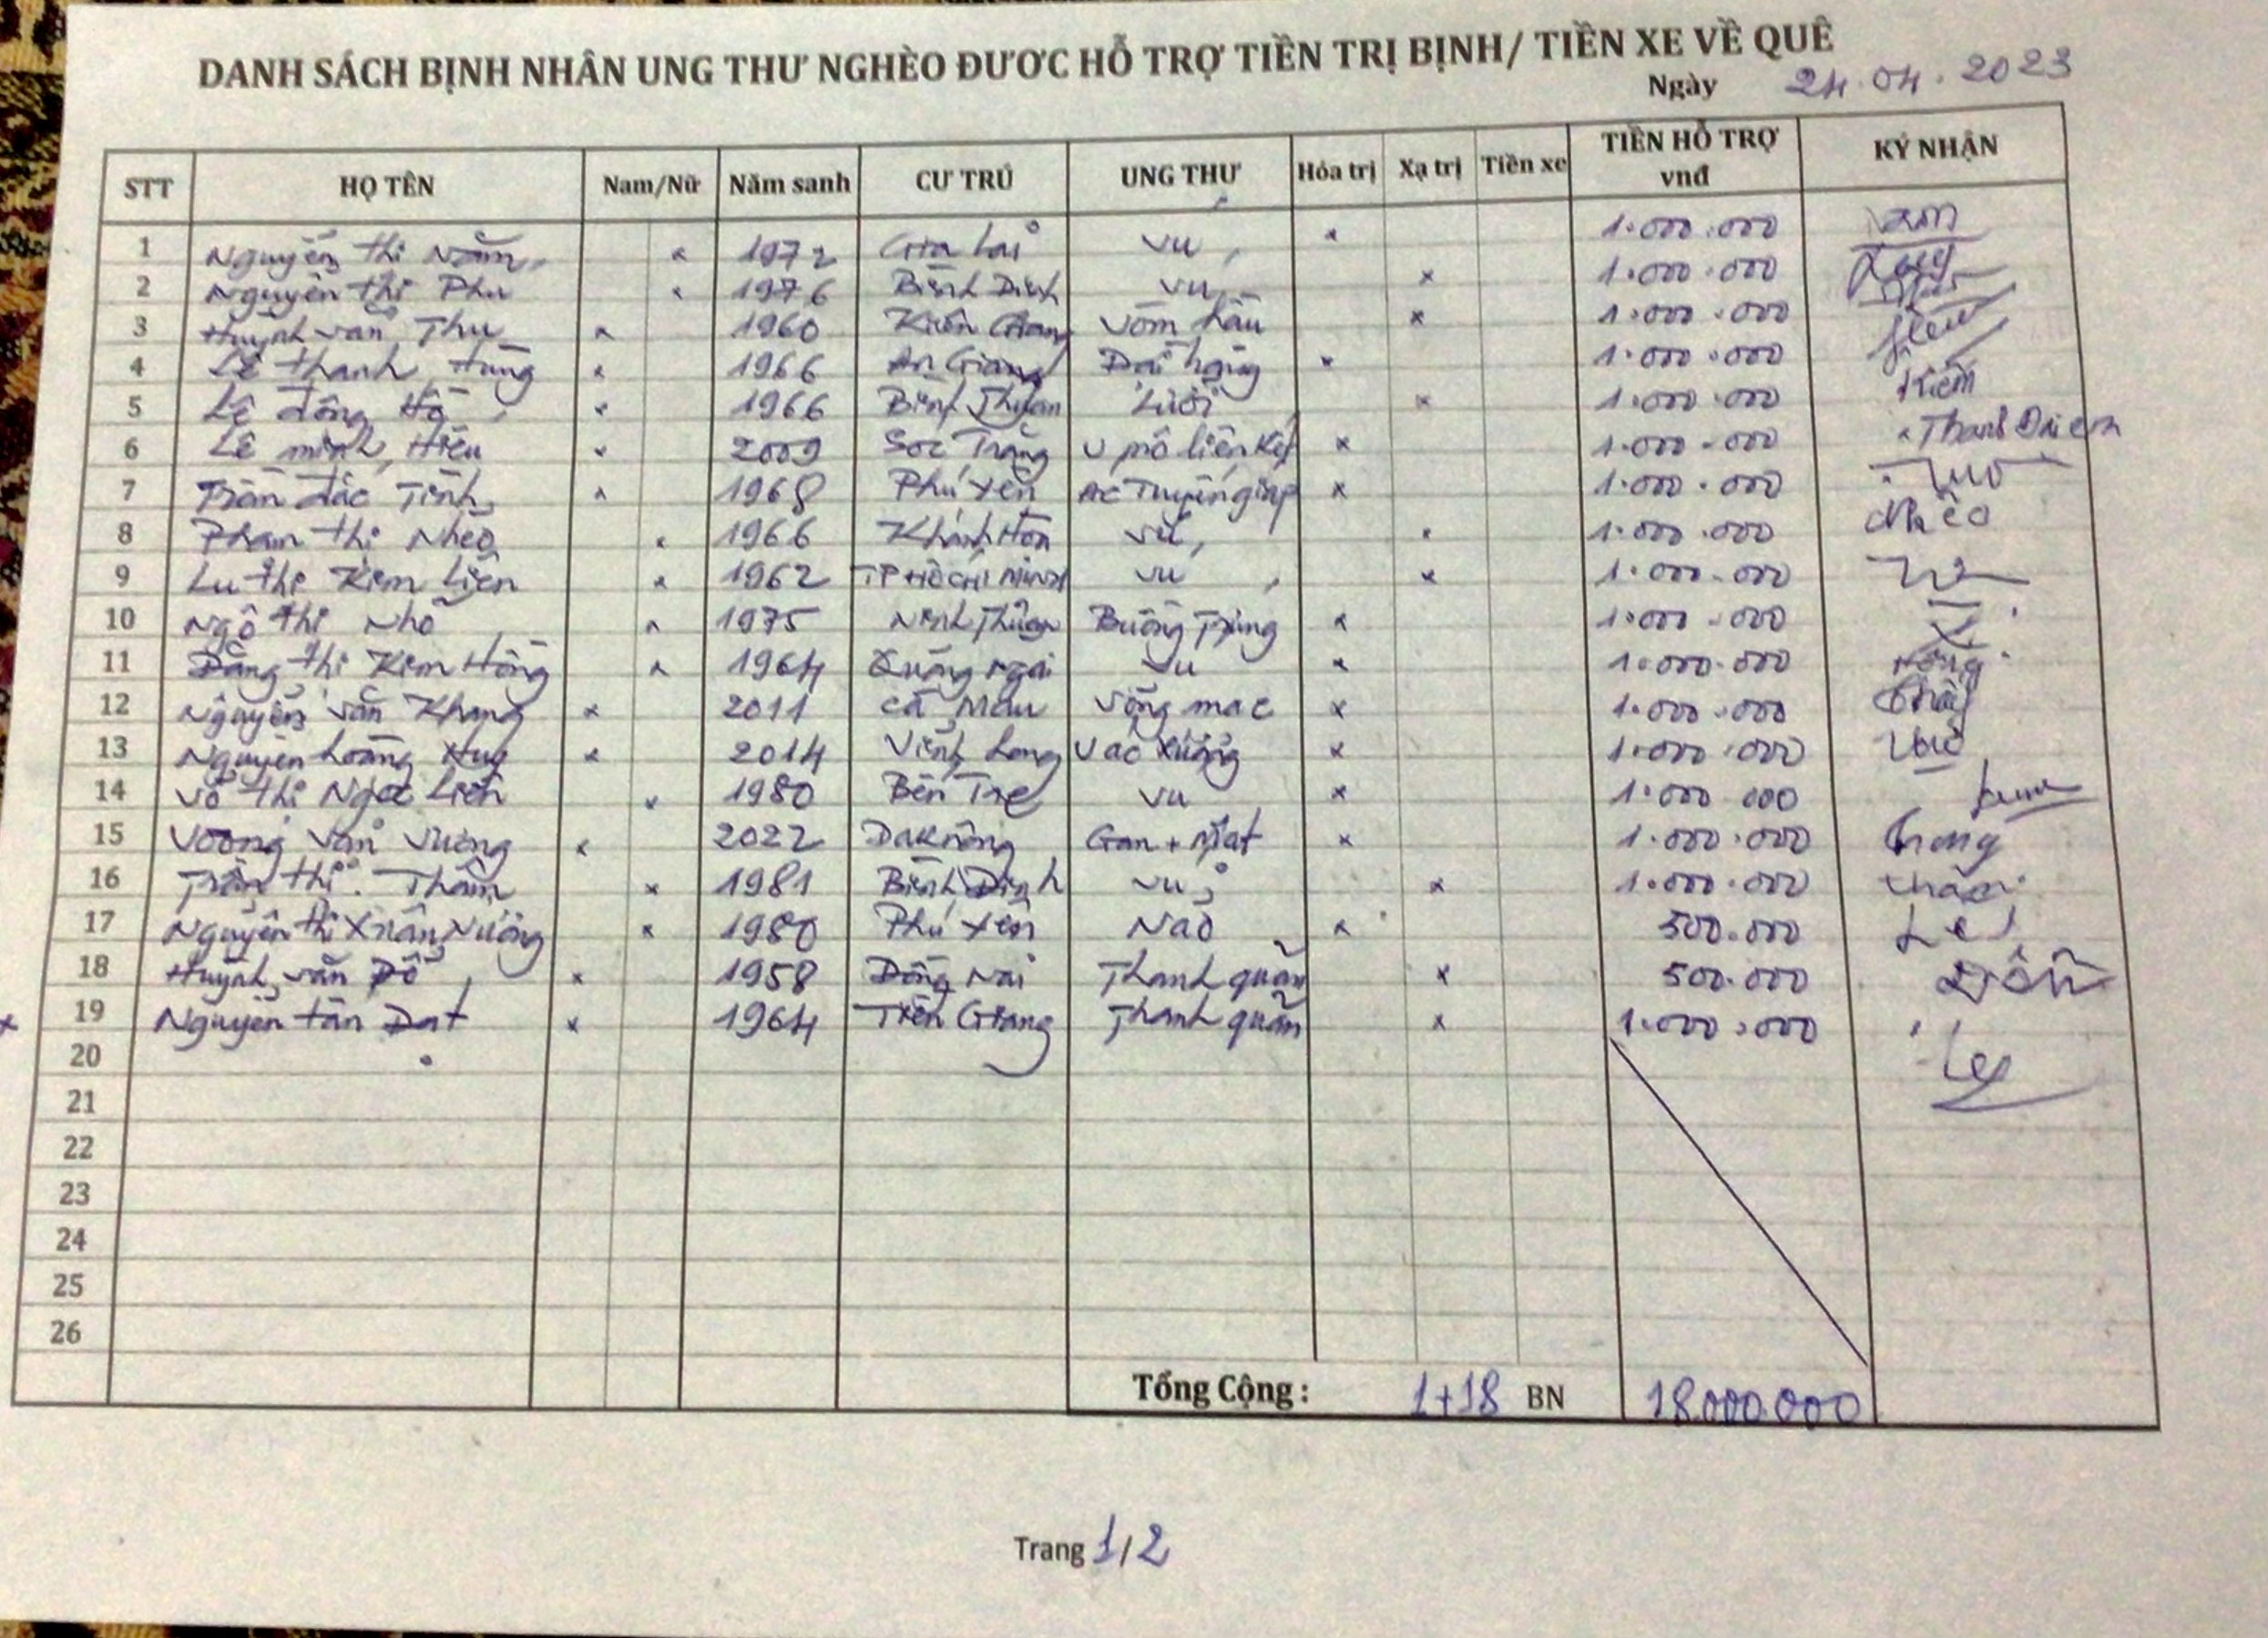 DANH SÁCH BỊNH NHÂN UNG THƯ NGHÈO ĐƯƠC HỖ TRỢ TIỀN TRỊ BỊNH/ TIỀN XE VỀ QUÊ
Ngày 24.04.2023
STT HỌ TÊN Nam/Nữ Năm sanh CƯ TRÚ UNG THƯ Hóa trị Xạ trị Tiền xe TIỀN HỖ TRỢ vnđ KÝ NHẬN
1 Nguyễn thị Năm x 1972 Gia Lai Vú x 1.000.000
2 Nguyễn thị Phu x 1976 Bình Định Vú x 1.000.000
3 Huỳnh văn Thu x 1960 Kiên Giang Vòm hầu x 1.000.000
4 Lê thanh Hùng x 1966 An Giang Đại tràng x 1.000.000
5 Lê đồng Hồ x 1966 Bình Thuận Lưỡi x 1.000.000
6 Lê minh Hiếu x 2009 Sóc Trăng U mô liên kết x 1.000.000
7 Trần đắc Tính x 1968 Phú Yên Ac Tuyến giáp x 1.000.000
8 Phạm thị Nhèo x 1966 Khánh Hòa Vú x 1.000.000 Nhèo
9 Lu thi Kim Liên x 1962 TP HỒ CHÍ MINH Vú x 1.000.000
10 Ngô thị Nhỏ x 1975 Ninh Thuận Buồng Trứng x 1.000.000
11 Đặng thị Kim Hồng x 1964 Quảng Ngãi Vú x 1.000.000 Hồng
12 Nguyễn văn Khang x 2011 Cà Mau Võng mạc x 1.000.000
13 Nguyễn hoàng Huy x 2014 Vĩnh Long U ác xương x 1.000.000
14 Võ thị Ngọc Liên x 1980 Bến Tre Vú x 1.000.000
15 Voòng Văn Vương x 2022 Dak nông Gan + Mật x 1.000.000
16 Trần thị Thắm x 1981 Bình Định Vú x 1.000.000 thắm
17 Nguyễn thị Xuân Nương x 1980 Phú Yên Não x 500.000
18 Huỳnh văn Đổ x 1958 Đồng Nai Thanh quản x 500.000
x 19 Nguyễn tấn Đạt x 1964 Tiền Giang Thanh quản x 1.000.000
20
21
22
23
24
25
26
Tổng Cộng : 1+18 BN 18.000.000
Trang 1/2